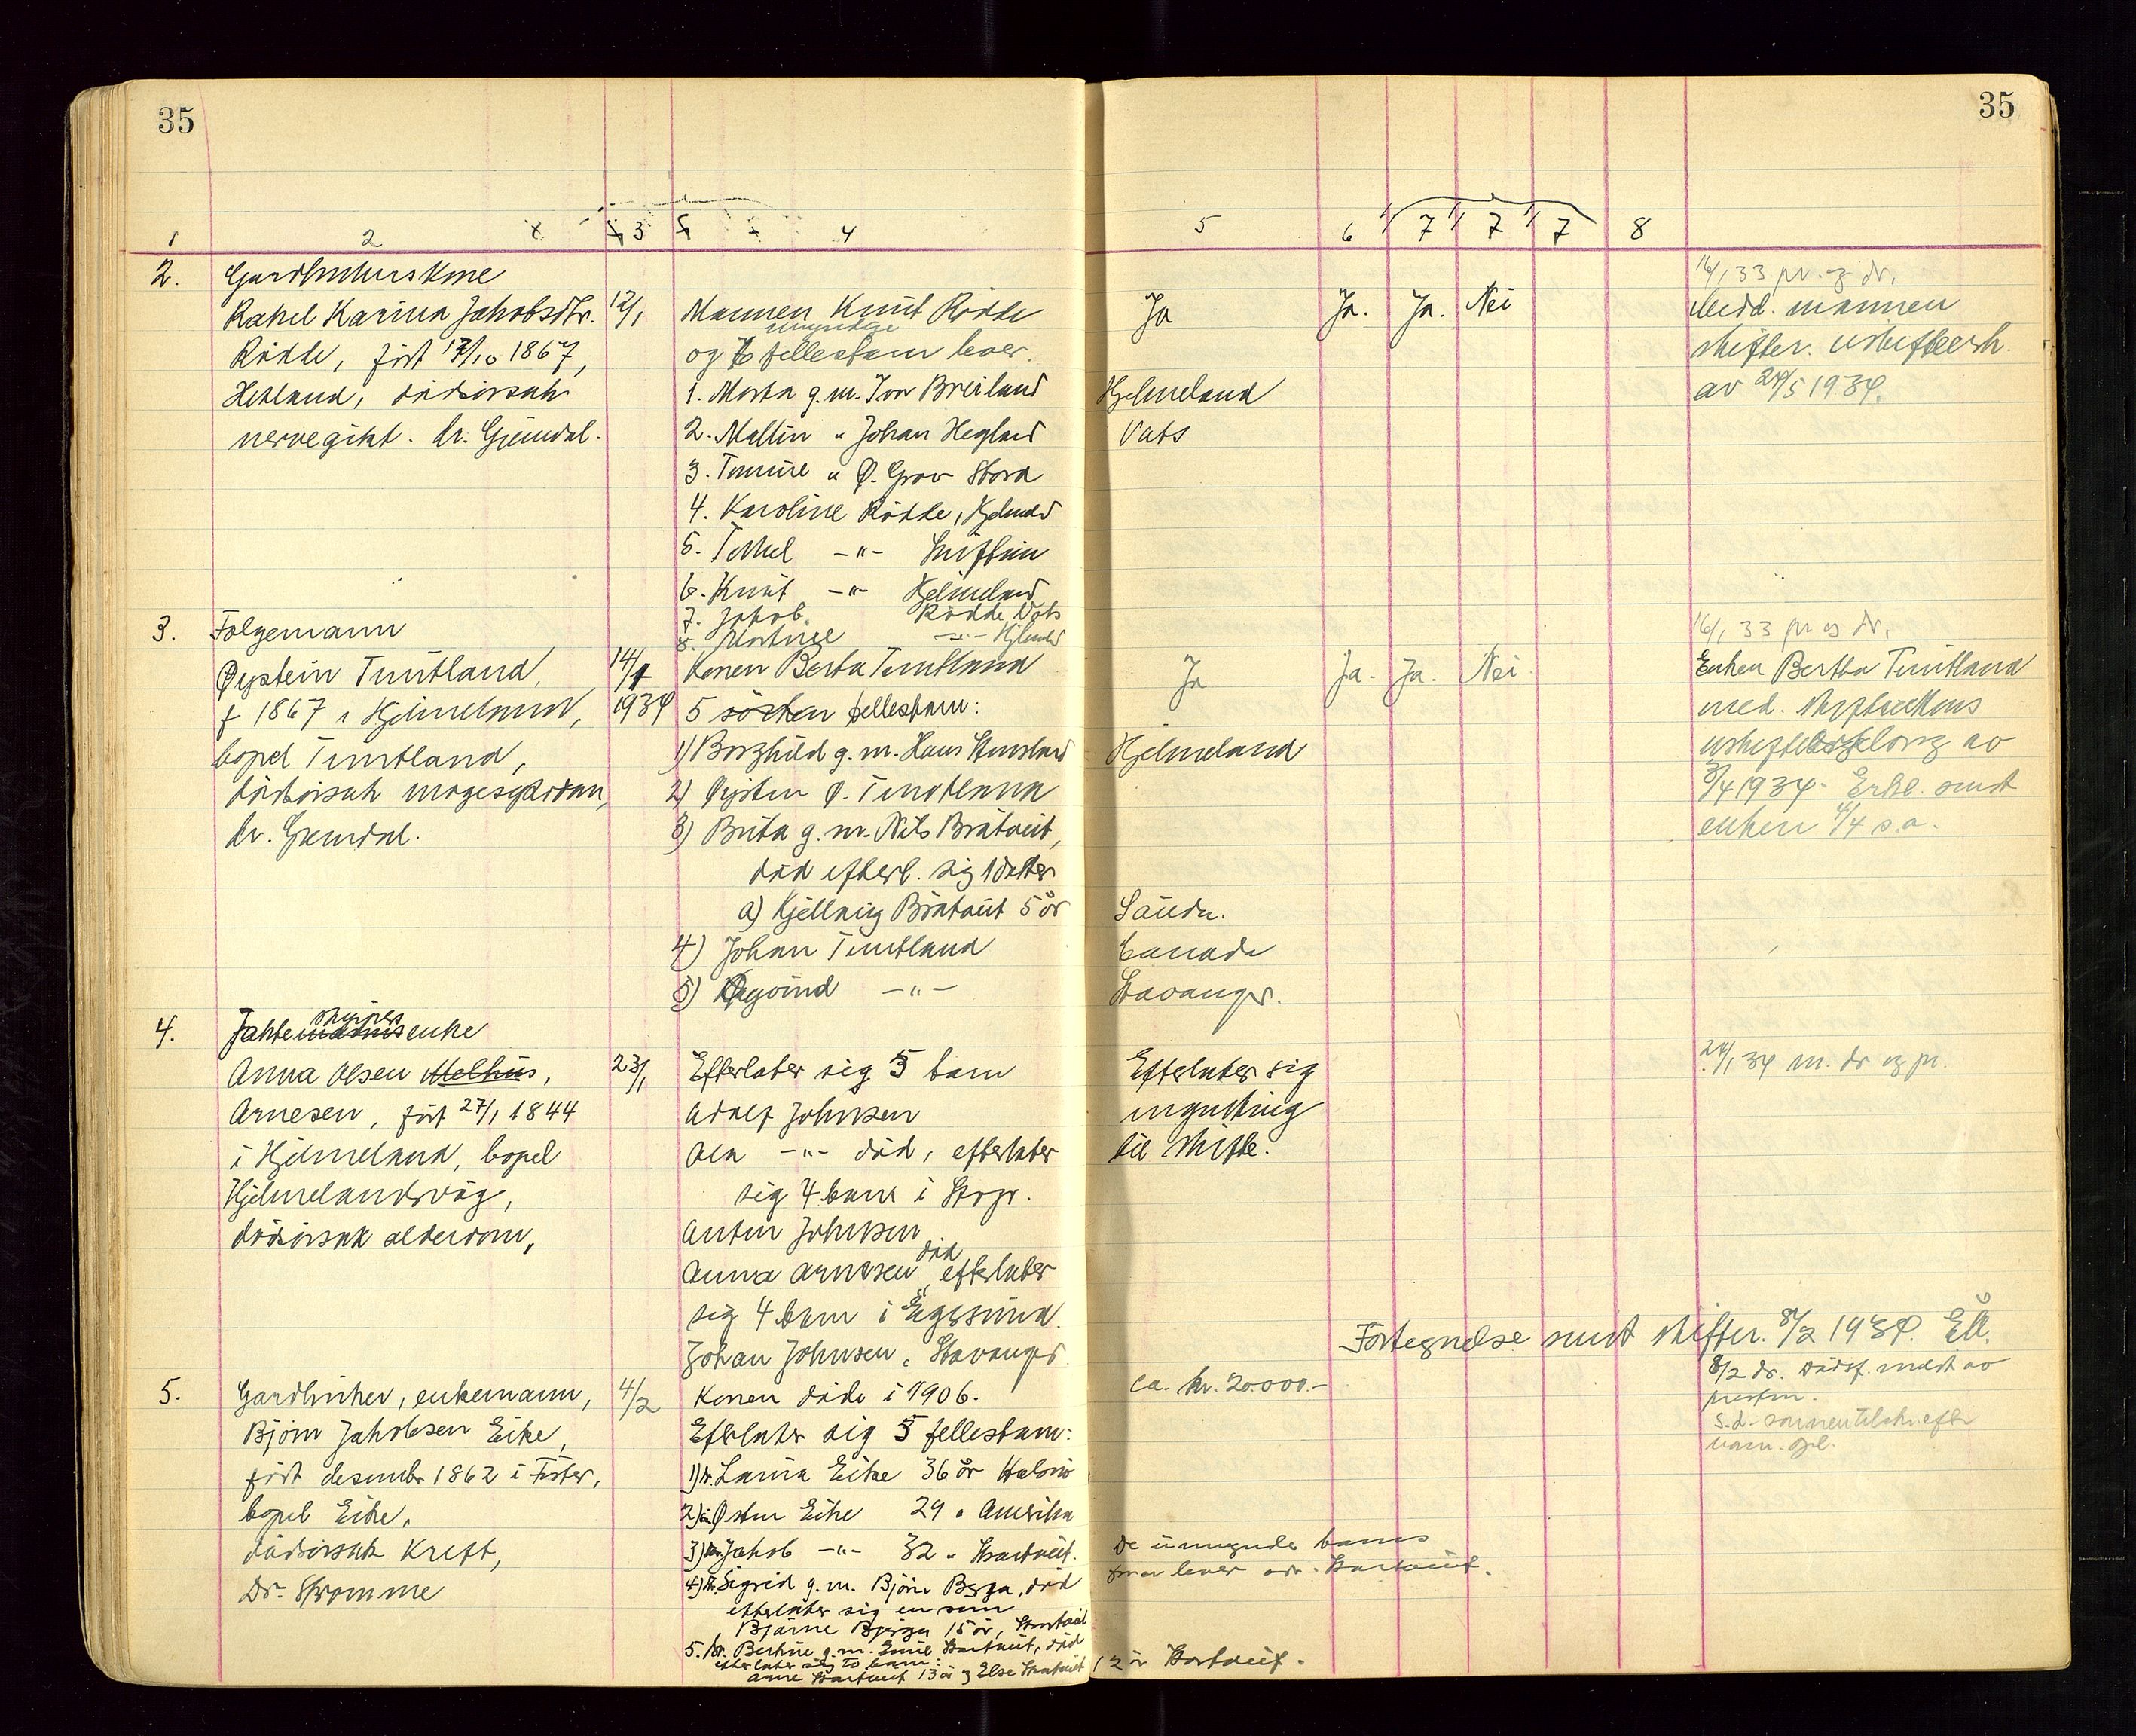 35
35
1 2 3 4
5 6 7 7 7 8
2. Gardbrukerskone
Rakel Karina Jakobsdtr.
Rödde, født 17/10 1867,
Hetland, dødsårsak
nervegikt. dr. Gjemdal.
12/1
Mannen Knut Rödde
umyndige
og fellesbarn lever.
1. Marta g.m. Ivar Breiland
2. Mallin " Johan Hegland
3. Tomine " Ø. Grov Stord
4. Karoline Rödde, Hjelmeld
5. Torkel -"-
6. Knut -"- Hjelmeland
7. Jakob. Rödde, Vats
8. Martine -"- Hjelmeld
Ja Ja. Ja. Nei
Hjelmeland
Vats
16/1 33 pr. og dr.
Medd. mannen
skifter. uskifteerk.
av 24/5 1934.
3. Følgemann
Øystein Tuntland,
f 1867 i Hjelmeland,
bopel Tuntland,
dødsårsak magesykdom,
dr. Gjemdal.
14/1
1934
Konen Berta Tuntland
5 sösken fellesbarn:
1) Borghild g.m. Hans Stensland
2) Øystein Ø. Tuntland
3) Brita g.m. Nils Bråtveit,
død efterl. sig 1 datter
a) Kjellaug Bråtveit 5 år
4) Johan Tuntland
5) Øyvind -"-
Ja Ja. Ja. Nei.
Hjelmeland
Sauda.
Canada
Stavanger.
16/1 33 pr og dr.
Enken Bertha Tuntland
med. skifterettens
av
3/4 1934. Erkl. sendt
enken 4/4 s.a.
4. skippers
Jaktemannsenke
Anna Olsen Melhus,
Arnesen, født 27/1 1844
i Hjelmeland, bopel
Hjelmelandsvåg,
dødsårsak alderdom.
23/1
Efterlater sig 5 barn
Adolf Johnsen
Ola -"- død, efterlater
sig 4 barn i Stvgr.
Anton Johnsen
død
Anna Arnesen, efterlater
sig 4 barn i Egersund.
Johan Johnsen, Stavanger
Efterlater sig
ingenting
til skifte.
24/1 34 m. dr og pr.
Fortegnelse sendt skifter. 8/2 1934. Ell.
5. Gardbruker, enkemann,
Björn Jakobsen Eike,
født desember 1862 i Fister,
bopel Eike.
dødsårsak Kreft,
Dr. Strömme
4/2
Konen døde i 1906.
Efterlater sig 5 fellesbarn:
1) Laura Eike 36 år
2) Østen Eike 29 " Amerika
3) Jakob -"- 32 " Hartveit.
4) Sigrid g.m. Björn Berga, død
efterlater sig en sønn
Bjarne Bjerga 15 år, Hartveit
5. Bertine g.m. Emil Hartveit, død
efterlater sig to barn:
Anne Hartveit 13 år og Else Hartveit 12 år Hartveit.
ca. kr. 20.000.-
De umyndige barns
far lever adr. Hartveit.
8/2 dr. dødsf. meldt av
presten.